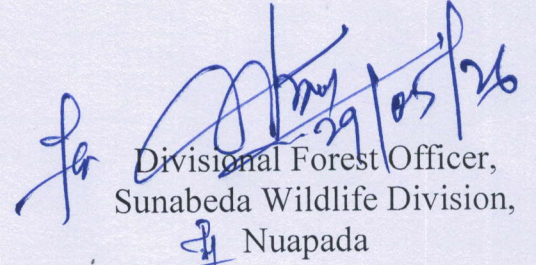 for
29/05/26
Divisional Forest Officer,
Sunabeda Wildlife Division,
Nuapada